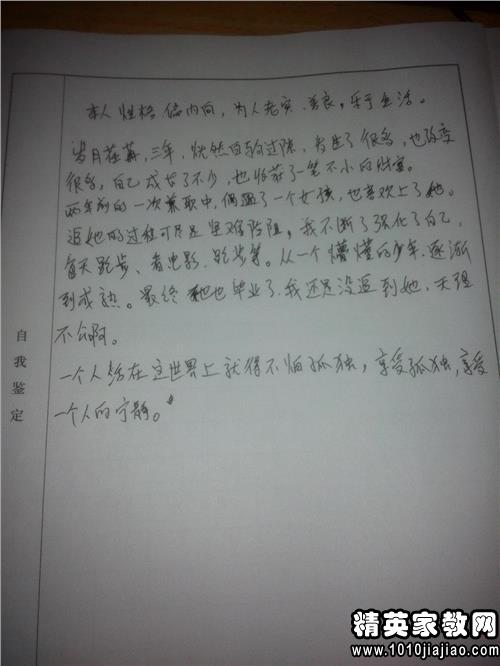 本人性格偏内向,为人老实、善良,乐于生活。
岁月荏苒,三年,恍然白驹过隙,发生了很多,也改变
很多,自己成长了不少,也收获了一笔不小的财富。
两年前的一次兼职中,偶遇了一个女孩,也喜欢上了她。
追她的过程可尽是坚难险阻,我不断了强化了自己,
每天跑步、看电影、跑步等。从一个懵懂的少年,逐渐
到成熟。最终 她也毕业了,我还是没追到她,天理
不公啊。
一个人活在这世界上就得不怕孤独,享受孤独,享受
一个人的宁静。
自我鉴定
精英家教网
www.1010jiajiao.com